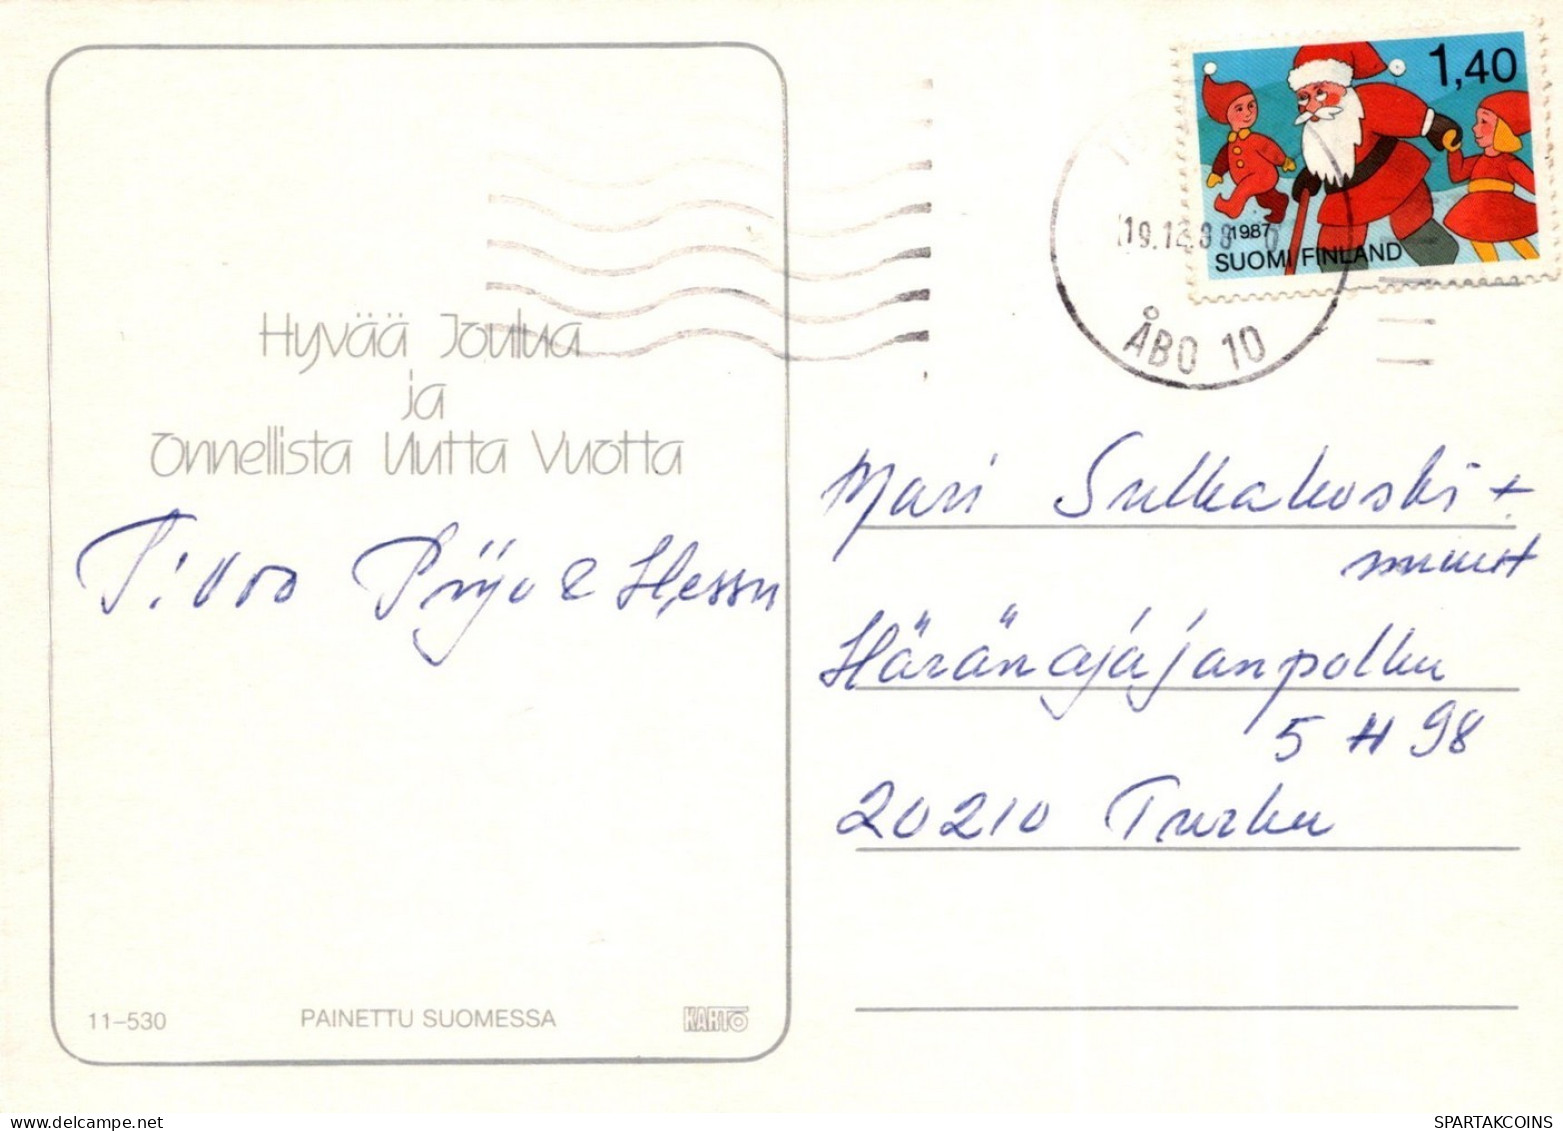 1,40
1987
SUOMI FINLAND
ÅBO 10
Hyvää Joulua
ja
Onnellista Uutta Vuotta
Pirjo & Hessu
Mari Sulkakoski +
muut
Häränajajanpolku
5 H 98
20210 Turku
11-530 PAINETTU SUOMESSA KARTO
SPARTAKCOINS